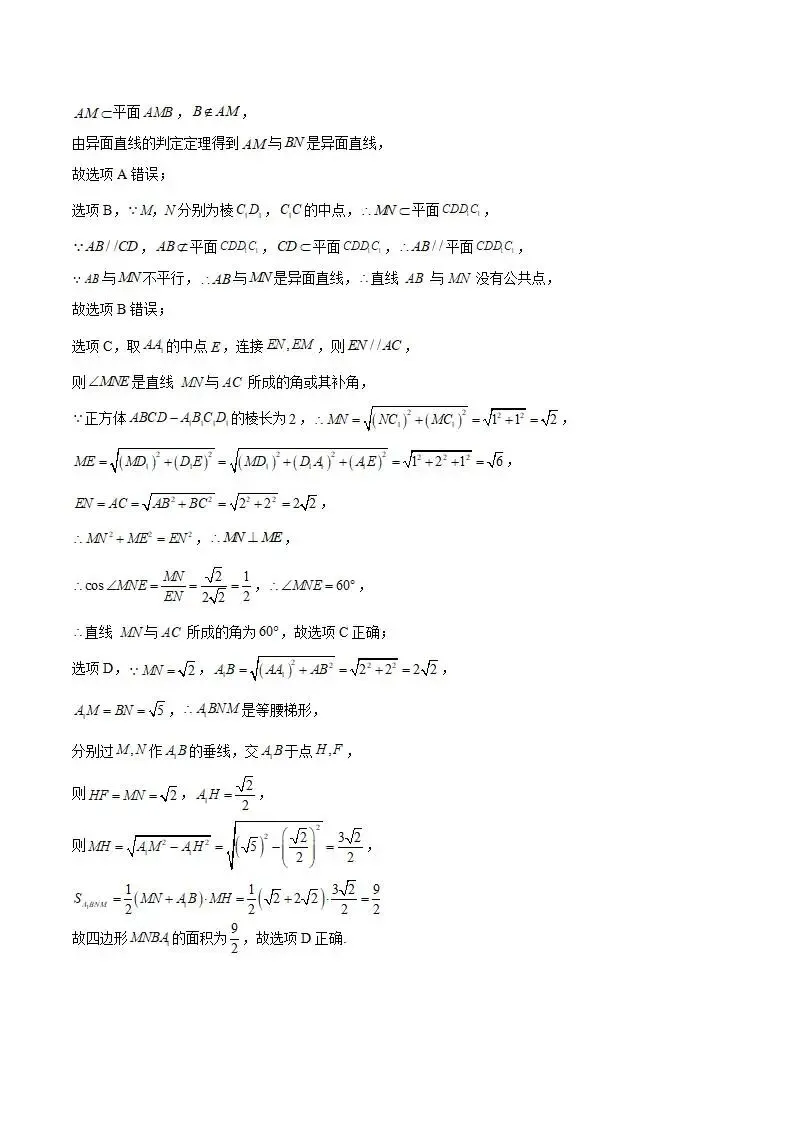 AM⊂平面 AMB，B∉AM，
由异面直线的判定定理得到 AM 与 BN 是异面直线，
故选项 A 错误；
选项 B，∵M，N 分别为棱 C₁D₁，C₁C 的中点，∴MN⊂平面 CDD₁C₁，
∵AB//CD，AB⊄平面 CDD₁C₁，CD⊂平面 CDD₁C₁，∴AB//平面 CDD₁C₁，
∵AB 与 MN 不平行，∴AB 与 MN 是异面直线，∴直线 AB 与 MN 没有公共点，
故选项 B 错误；
选项 C，取 AA₁ 的中点 E，连接 EN,EM，则 EN//AC，
则 ∠MNE 是直线 MN 与 AC 所成的角或其补角，
∵正方体 ABCD−A₁B₁C₁D₁ 的棱长为 2，∴MN=√((NC₁)²+(MC₁)²)=√(1²+1²)=√2，
ME=√((MD₁)²+(D₁E)²)=√((MD₁)²+(D₁A₁)²+(A₁E)²)=√(1²+2²+1²)=√6，
EN=AC=√(AB²+BC²)=√(2²+2²)=2√2，
∴MN²+ME²=EN²，∴MN⊥ME，
∴cos∠MNE=MN/EN=√2/2√2=1/2，∴∠MNE=60°，
∴直线 MN 与 AC 所成的角为 60°，故选项 C 正确；
选项 D，∵MN=√2，A₁B=√((AA₁)²+AB²)=√(2²+2²)=2√2，
A₁M=BN=√5，∴A₁BNM 是等腰梯形，
分别过 M,N 作 A₁B 的垂线，交 A₁B 于点 H,F，
则 HF=MN=√2，A₁H=√2/2，
则 MH=√(A₁M²−A₁H²)=√((√5)²−(√2/2)²)=3√2/2，
S_{A₁BNM}=1/2(MN+A₁B)·MH=1/2(√2+2√2)·3√2/2=9/2
故四边形 MNBA₁ 的面积为 9/2，故选项 D 正确.